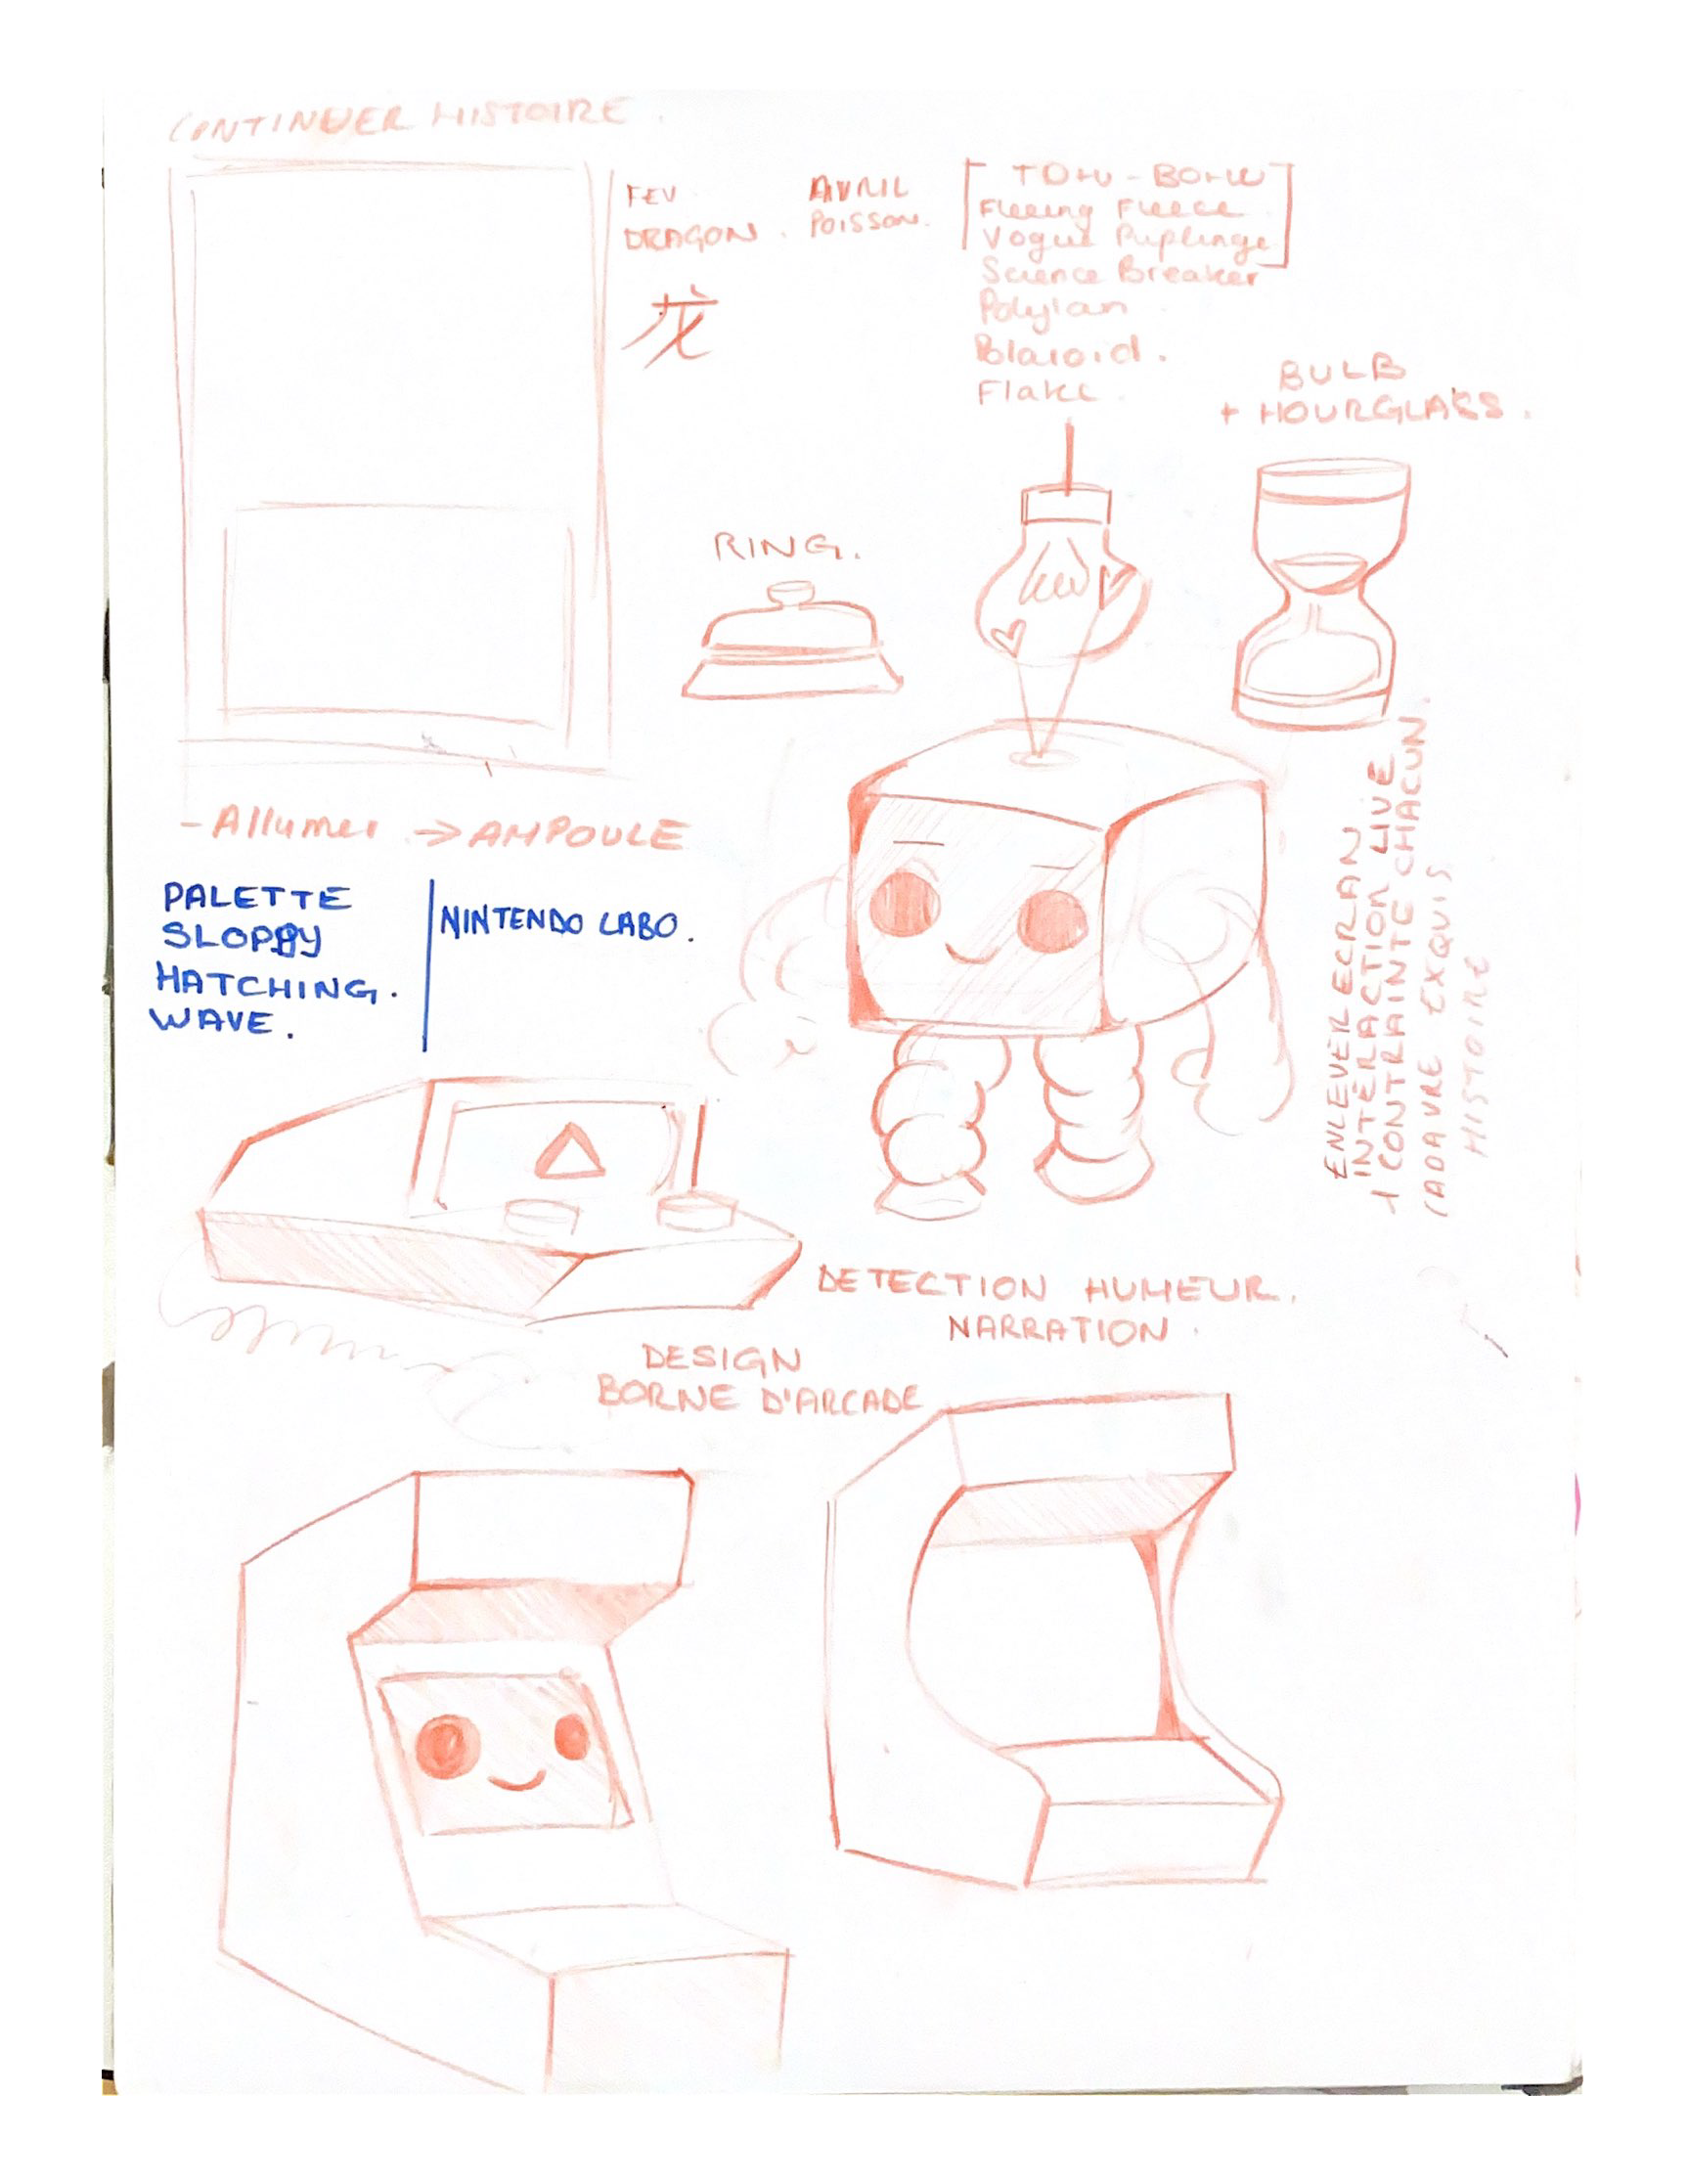 CONTINUER HISTOIRE.
FEV
DRAGON.
AVRIL
POISSON.
龙
TOHU-BOHU
Fleeing Fleece
Vogue
Science Breaker
Polaroid.
Flake.
BULB
+ HOURGLASS.
RING.
- Allumer -> AMPOULE
PALETTE
SLOPPY
HATCHING.
WAVE.
NINTENDO LABO.
ENLEVER ECRAN
INTERACTION LIVE
1 CONTRAINTE CHACUN.
CADAVRE EXQUIS
HISTOIRE
DETECTION HUMEUR.
NARRATION.
DESIGN
BORNE D'ARCADE